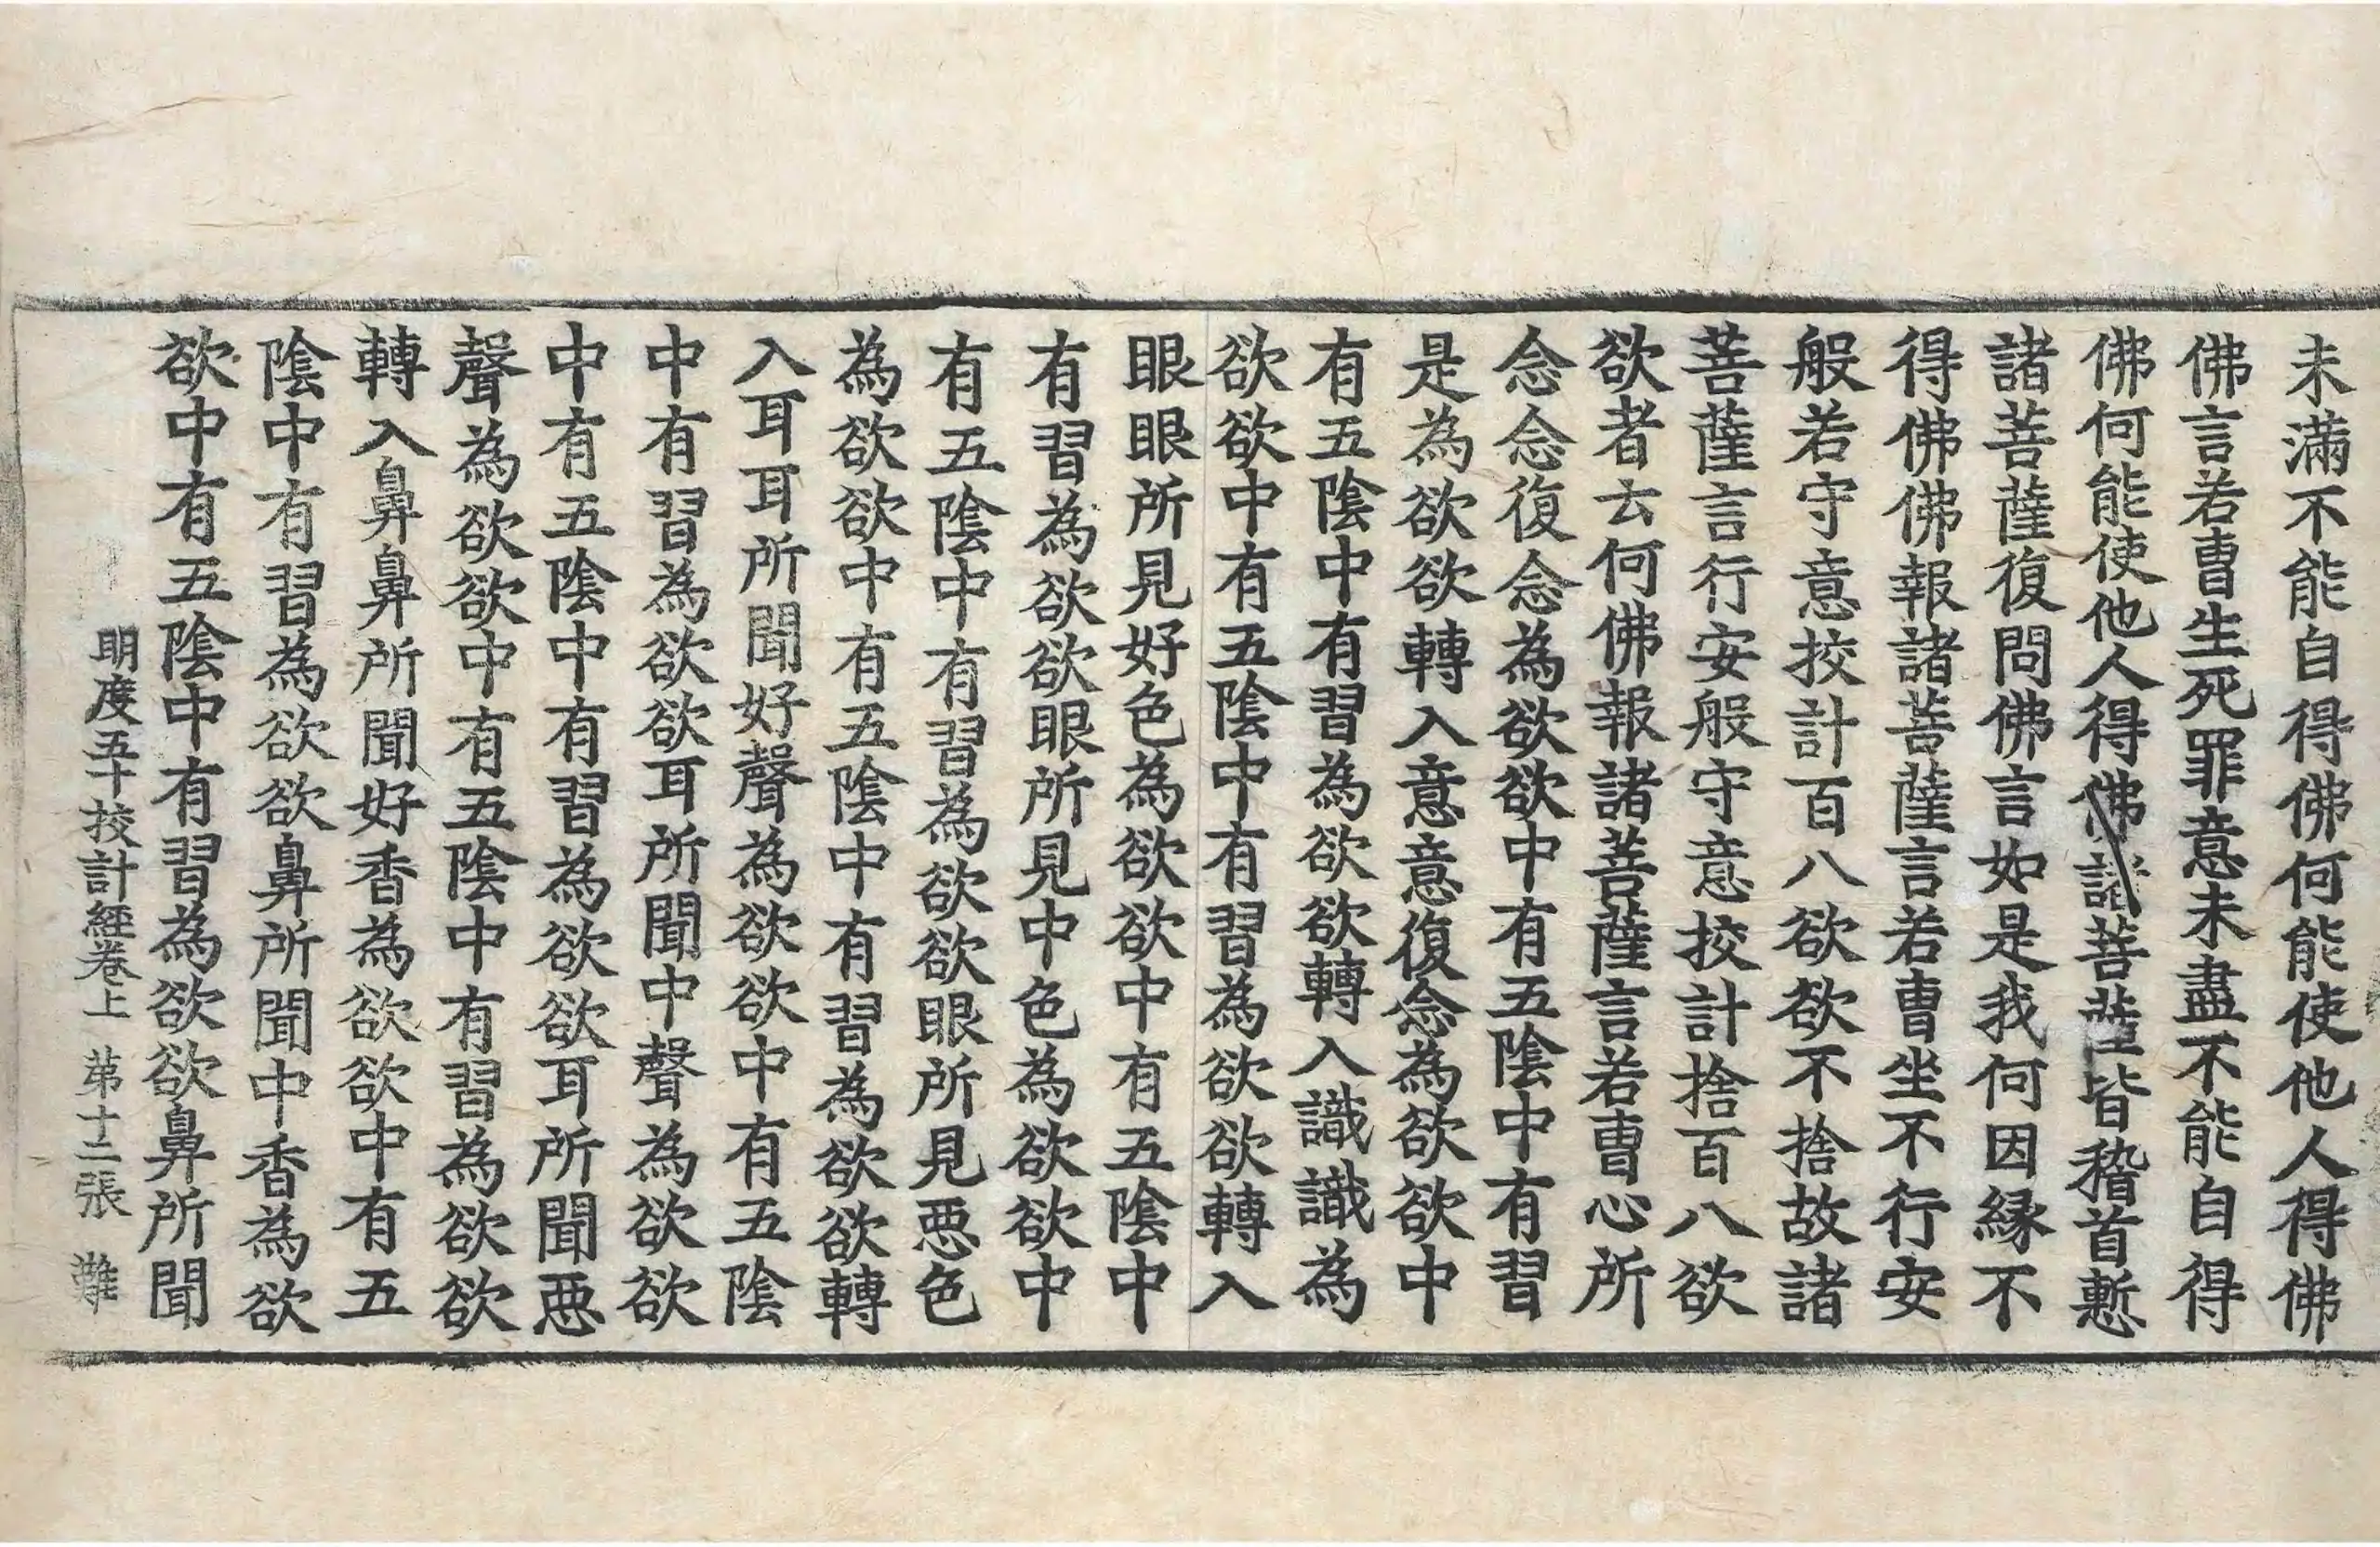 未滿不能自得佛何能使他人得佛
佛言若曹生死罪意未盡不能自得
佛何能使他人得佛諸菩薩皆稽首慙
諸菩薩復問佛言如是我何因緣不
得佛佛報諸菩薩言若曹坐不行安
般若守意挍計百八欲欲不捨故諸
菩薩言行安般守意挍計捨百八欲
欲者云何佛報諸菩薩言若曹心所
念念復念為欲欲中有五陰中有習
是為欲欲轉入意意復念為欲欲中
有五陰中有習為欲欲轉入識識為
欲欲中有五陰中有習為欲欲轉入
眼眼所見好色為欲欲中有五陰中
有習為欲欲眼所見中色為欲欲中
有五陰中有習為欲欲眼所見惡色
為欲欲中有五陰中有習為欲欲轉
入耳耳所聞好聲為欲欲中有五陰
中有習為欲欲耳所聞中聲為欲欲
中有五陰中有習為欲欲耳所聞惡
聲為欲欲中有五陰中有習為欲欲
轉入鼻鼻所聞好香為欲欲中有五
陰中有習為欲欲鼻所聞中香為欲
欲中有五陰中有習為欲欲鼻所聞
明度五十挍計經卷上 苐十二張 難